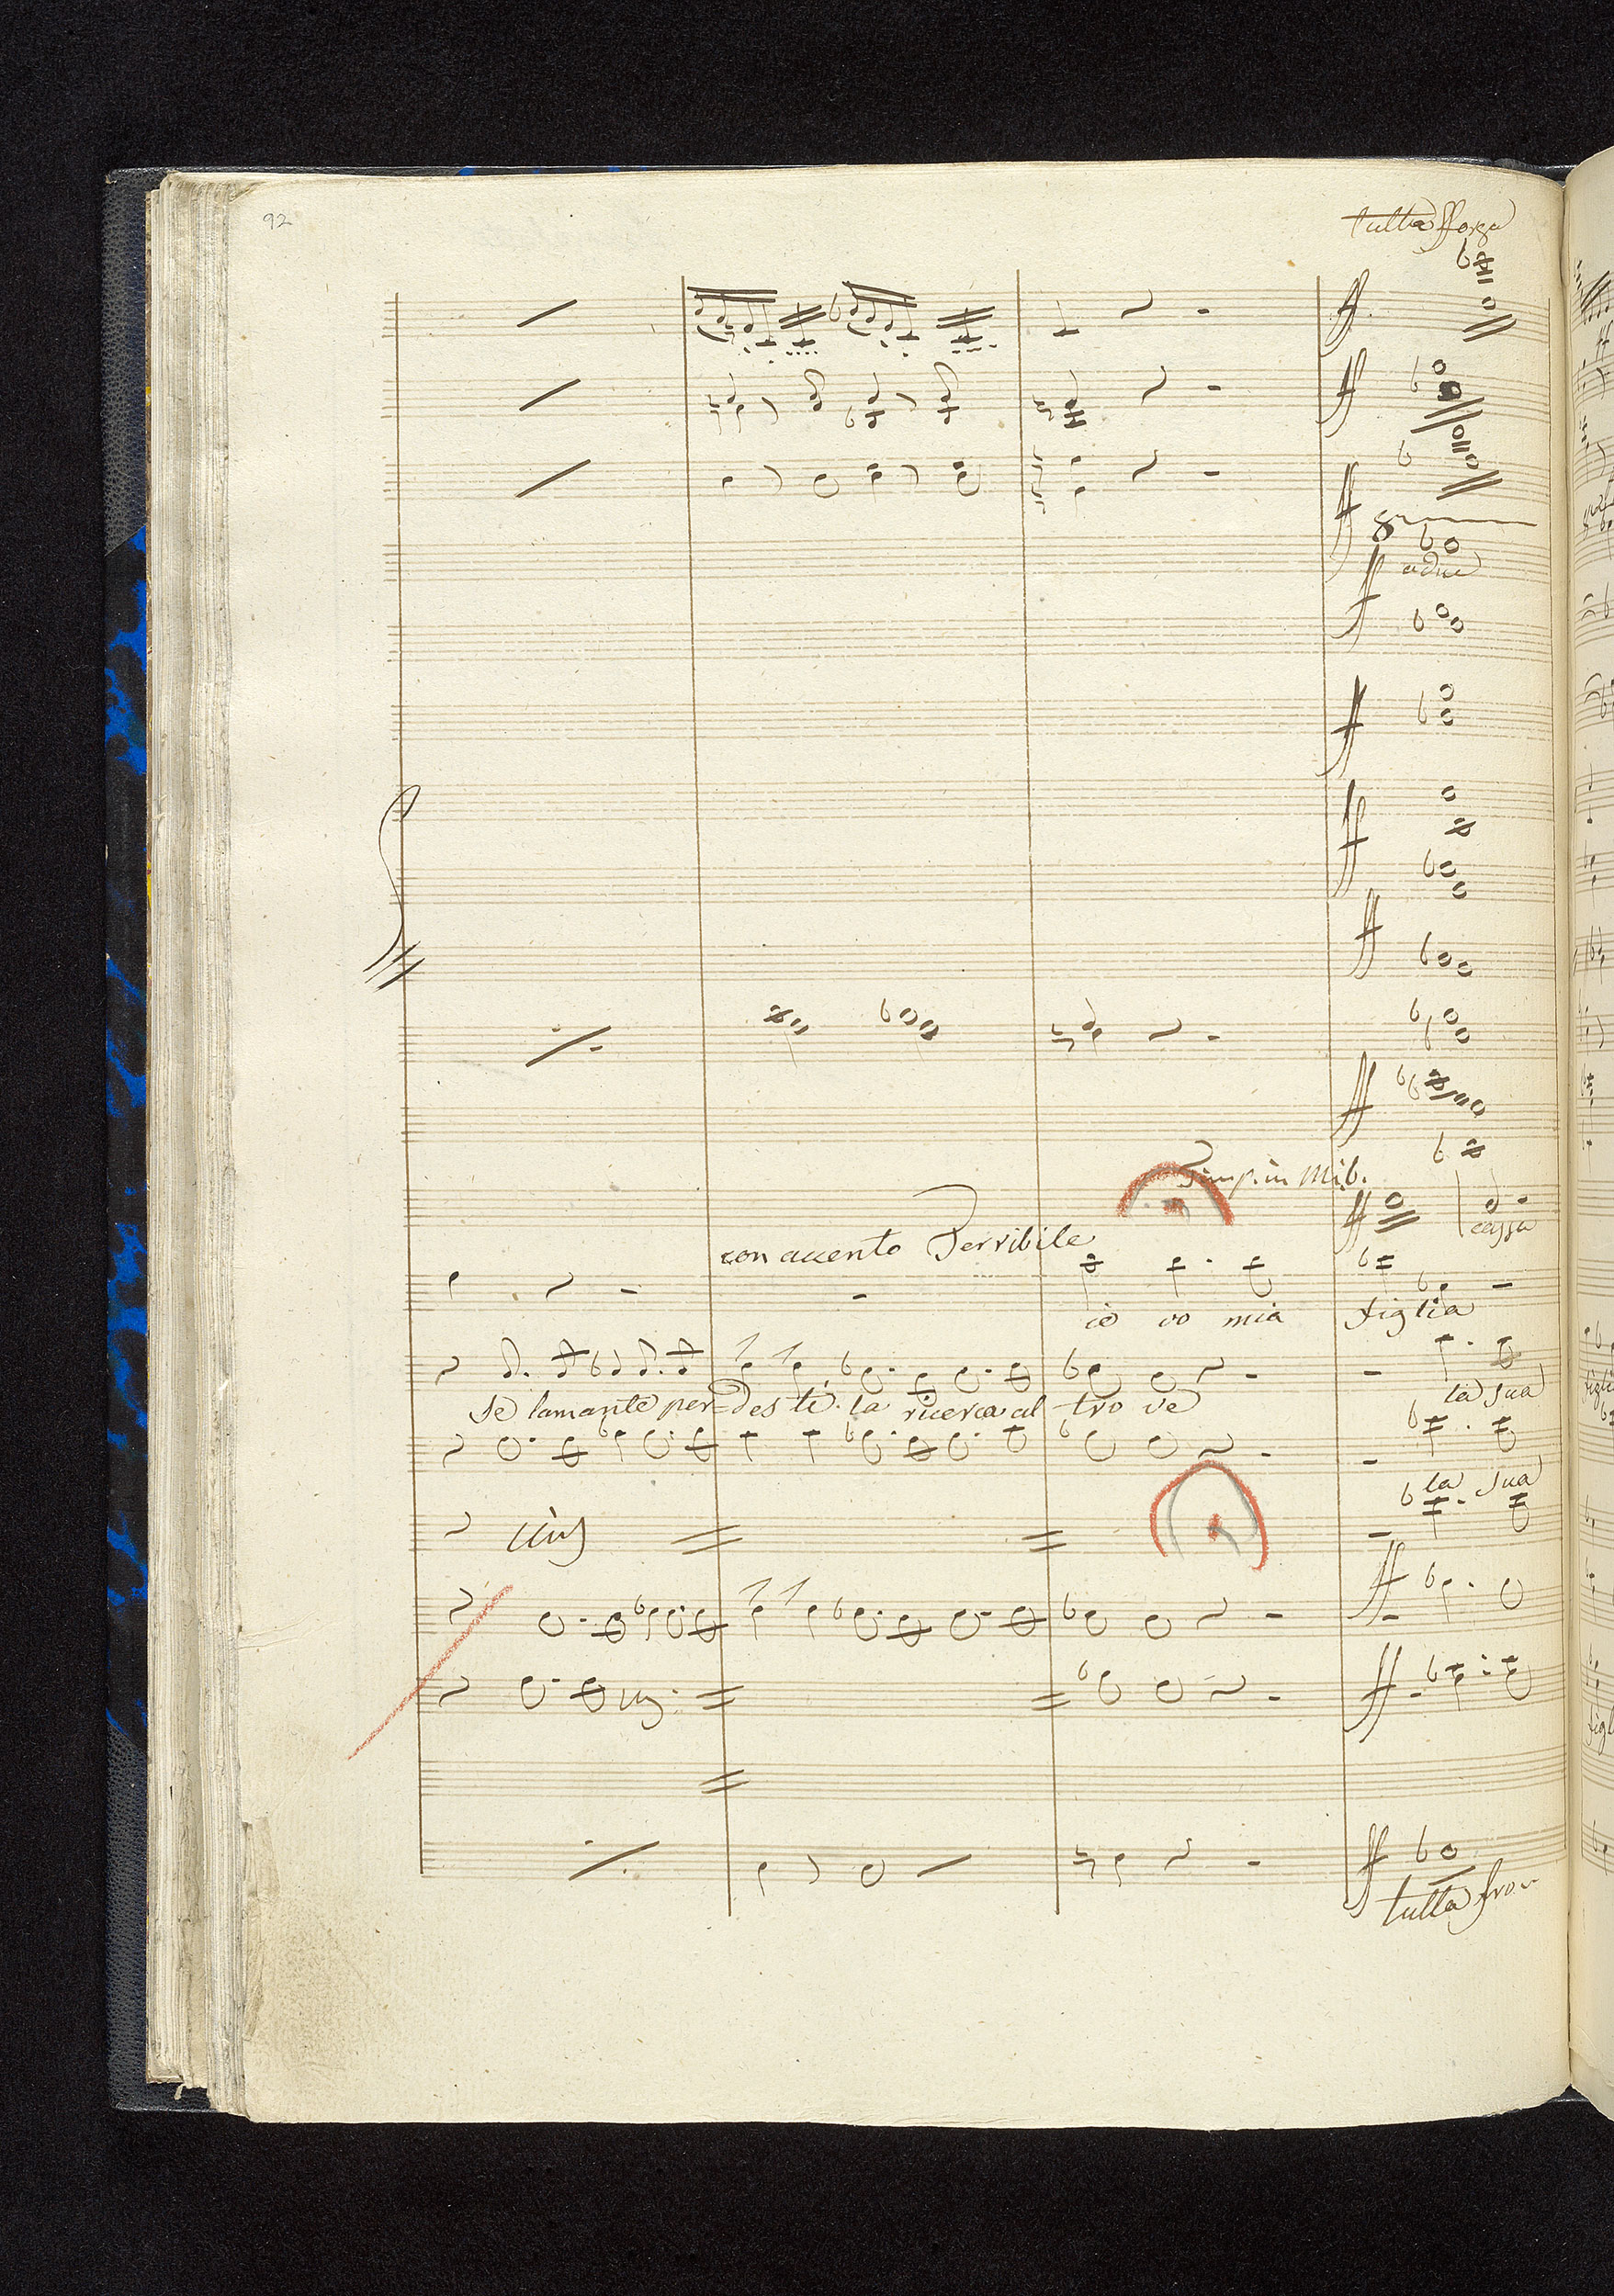 92
tutta fforza
8
a due
Timp. in Mib.
cassa
con accento Terribile
io vo mia figlia
la sua
Se l'amante per=desti la ricerca al trove
la sua
unis
unis.
tutta